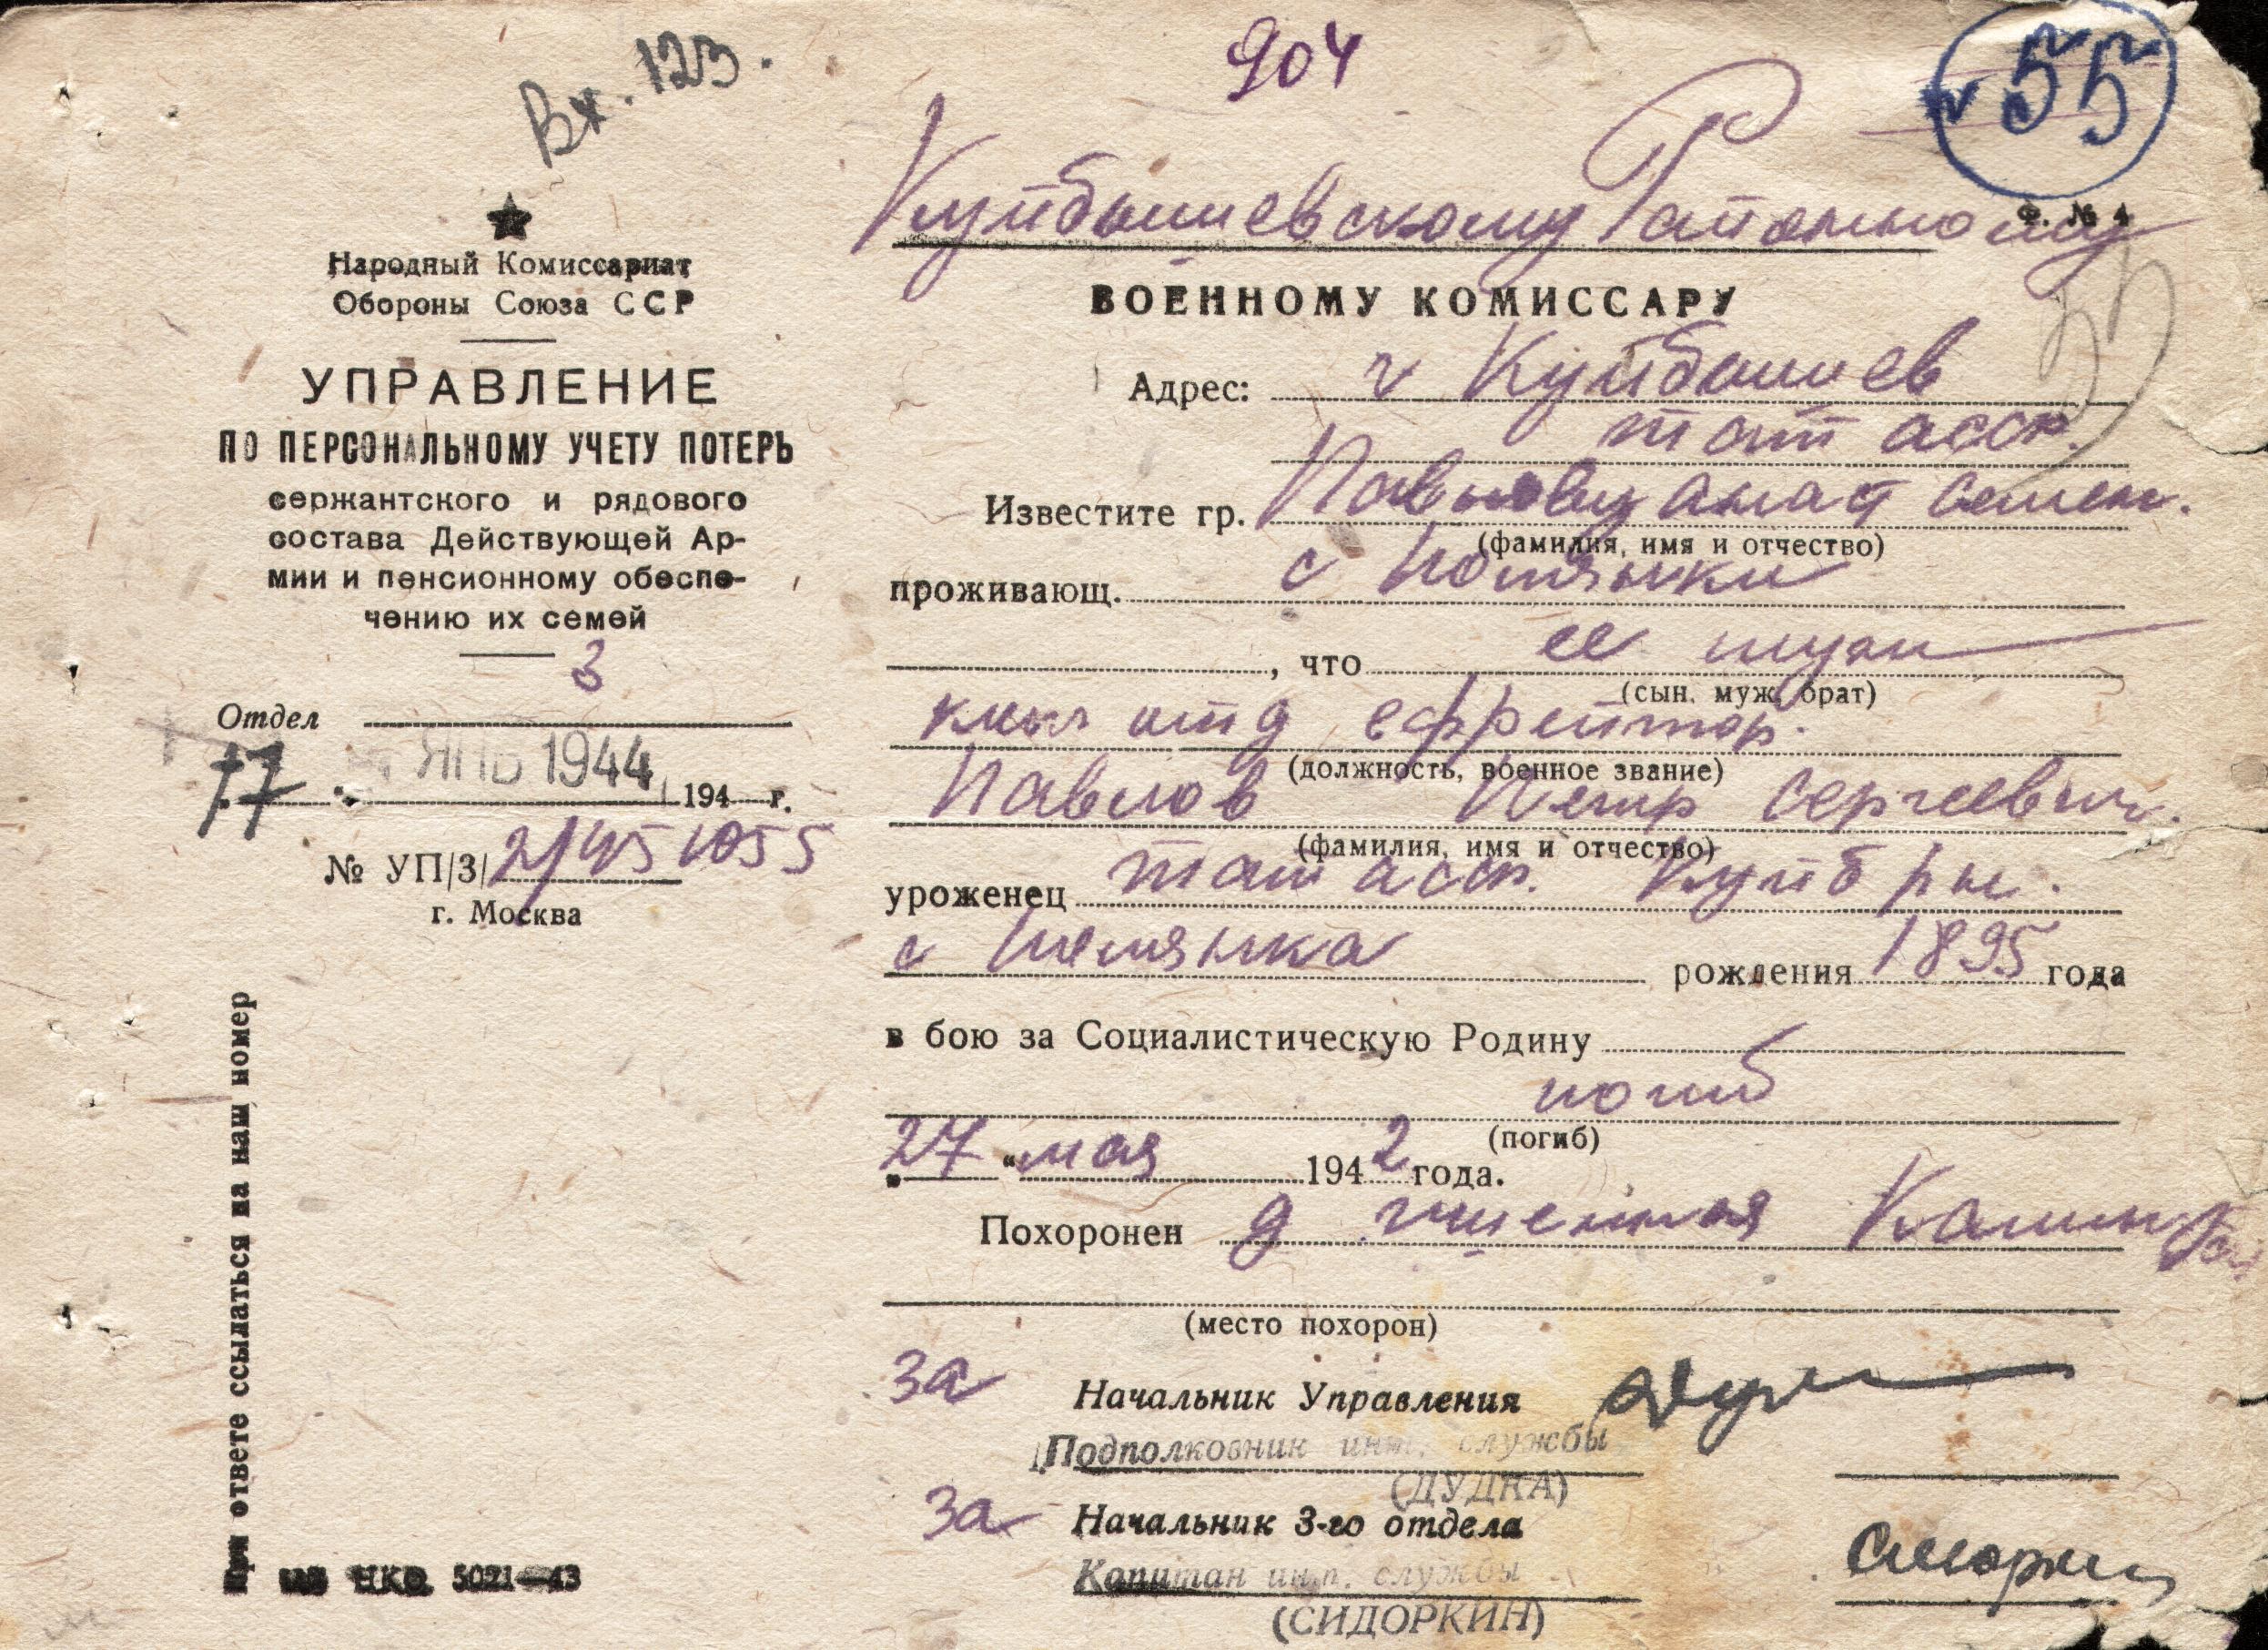 Вх. 123.
904
55
Ф. № 4
Народный Комиссариат
Обороны Союза ССР
УПРАВЛЕНИЕ
ПО ПЕРСОНАЛЬНОМУ УЧЕТУ ПОТЕРЬ
сержантского и рядового
состава Действующей Ар-
мии и пенсионному обеспе-
чению их семей
Отдел 3
17 ЯНВ 1944 194 г.
№ УП/3/
г. Москва
При ответе ссылаться на наш номер
НКО 5021—43
Куйбышевскому Районному
ВОЕННОМУ КОМИССАРУ
Адрес: г Куйбышев
тат асср.
Известите гр. Павлову Семен.
(фамилия, имя и отчество)
проживающ. с
, что ее муж
(сын, муж, брат)
ком отд ефрейтор.
(должность, военное звание)
Павлов Петр Сергеевич.
(фамилия, имя и отчество)
уроженец тат асср. Куйб рн.
с рождения 1895 года
в бою за Социалистическую Родину
погиб
(погиб)
„27“ мая 1942 года.
Похоронен д
(место похорон)
За Начальник Управления
Подполковник инт. службы
(ДУДКА)
За Начальник 3-го отдела
Капитан инт. службы
(СИДОРКИН)